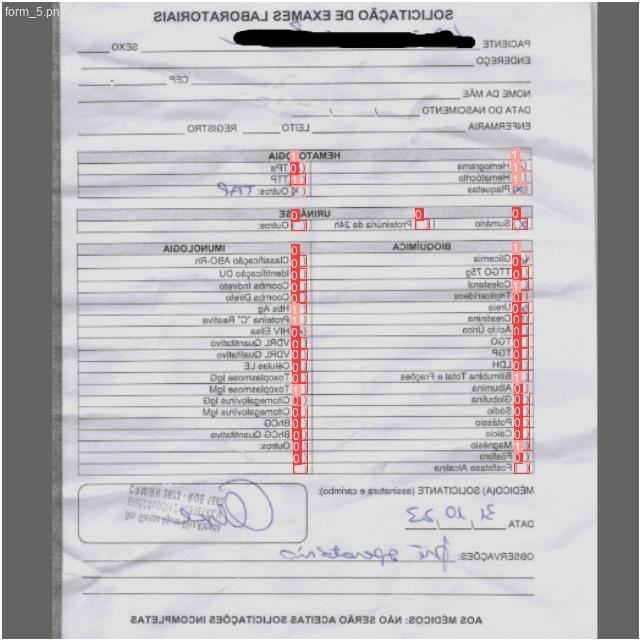 form_5.pn
SOLICITAÇÃO DE EXAMES LABORATORIAIS
PACIENTE SEXO
ENDEREÇO
CEP
NOME DA MÃE
DATA DO NASCIMENTO / /
ENFERMARIA LEITO REGISTRO
HEMATOLOGIA
Hemograma
Hematócrito
Plaquetas
TPa
TTP
Outros: TAP
URINÁLISE
Sumário
Proteinúria de 24h
Outros:
BIOQUÍMICA
Glicemia
TTGO 75g
Colesterol
Triglicerídeos
Ureia
Creatinina
Ácido Úrico
TGO
TGP
LDH
Bilirrubina Total e Frações
Albumina
Globulina
Sódio
Potássio
Cálcio
Magnésio
Fósforo
Fosfatase Alcalina
IMUNOLOGIA
Classificação ABO-Rh
Identificação DU
Coombs Indireto
Coombs Direto
Hbs Ag
Proteína "C" Reativa
HIV Elisa
VDRL Quantitativo
VDRL Qualitativo
Células LE
Toxoplasmose IgG
Toxoplasmose IgM
Citomegalovírus IgG
Citomegalovírus IgM
BhCG
BhCG Quantitativo
Outros:
MÉDICO(A) SOLICITANTE (assinatura e carimbo):
DATA 31 / 10 / 23
OBSERVAÇÕES: Pré operatório
AOS MÉDICOS: NÃO SERÃO ACEITAS SOLICITAÇÕES INCOMPLETAS